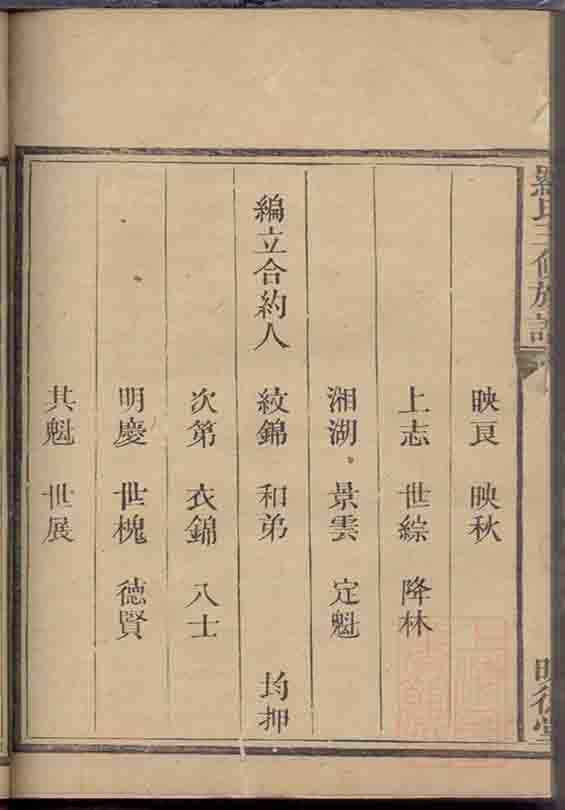 羅氏三修族譜
明德堂
映良 映秋
上志 世綜 降林
湘湖 景雲 定魁
編立合約人 紋錦 和弟 均押
次第 衣錦 八士
明慶 世槐 德賢
其魁 世展